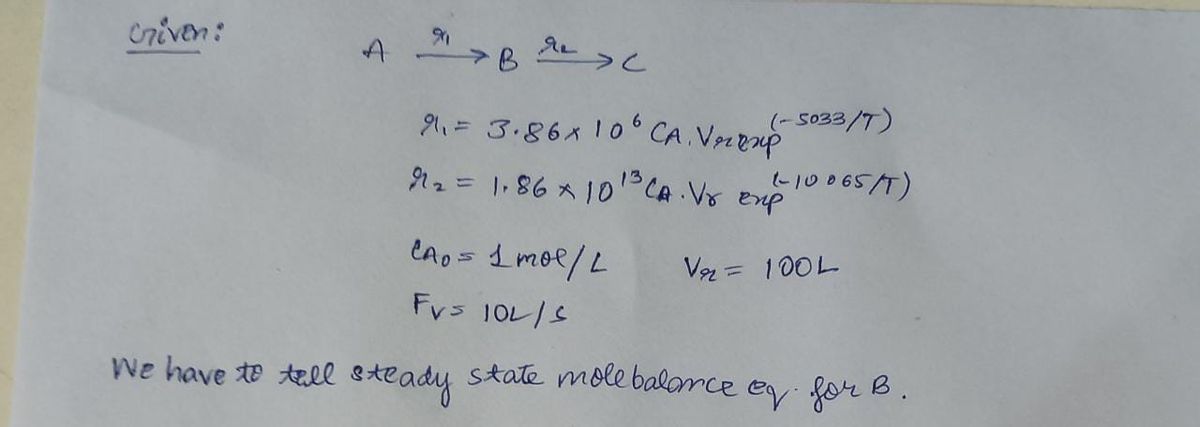 Given:
A r1→ B r2→ C
r1 = 3.86 × 10^6 CA. Vr exp^(-5033/T)
r2 = 1.86 × 10^13 CA. Vr exp^(-10065/T)
CA0 = 1 mol/L Vr = 100L
Fv = 10L/s
We have to tell steady state mole balance eq. for B.